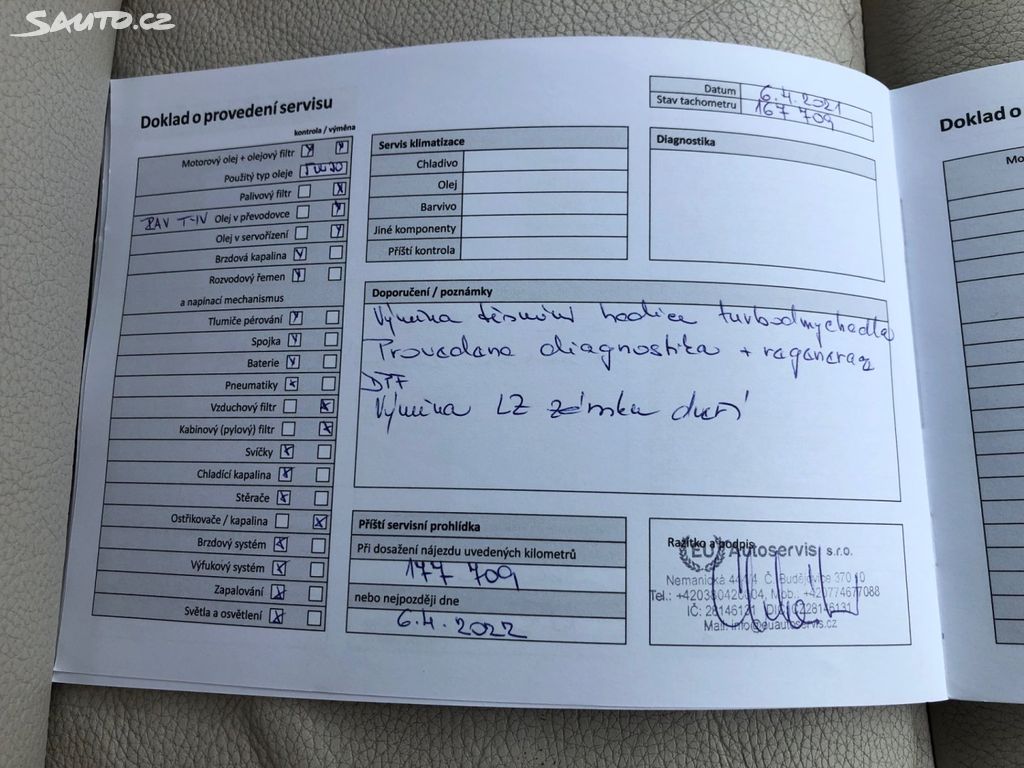 SAUTO.CZ
Doklad o provedení servisu
kontrola / výměna
Motorový olej + olejový filtr
Použitý typ oleje
Palivový filtr
T-IV Olej v převodovce
Olej v servořízení
Brzdová kapalina
Rozvodový řemen
a napínací mechanismus
Tlumiče pérování
Spojka
Baterie
Pneumatiky
Vzduchový filtr
Kabinový (pylový) filtr
Svíčky
Chladící kapalina
Stěrače
Ostřikovače / kapalina
Brzdový systém
Výfukový systém
Zapalování
Světla a osvětlení
Servis klimatizace
Chladivo
Olej
Barvivo
Jiné komponenty
Příští kontrola
Datum 6.4.2021
Stav tachometru 167 709
Diagnostika
Doporučení / poznámky
Výměna těsnění hadice turbodmychadla
Provedena diagnostika + regenerace
DPF
Výměna LZ zámku dveří
Příští servisní prohlídka
Při dosažení nájezdu uvedených kilometrů
177 709
nebo nejpozději dne
6.4.2022
Razítko a podpis
EU Autoservis s.r.o.
Nemanická Č. Budějovice 370 10
Tel.: Mob.: +420774677088
IČ: DIČ:
Mail: info@euautoservis.cz
Doklad o
Mo